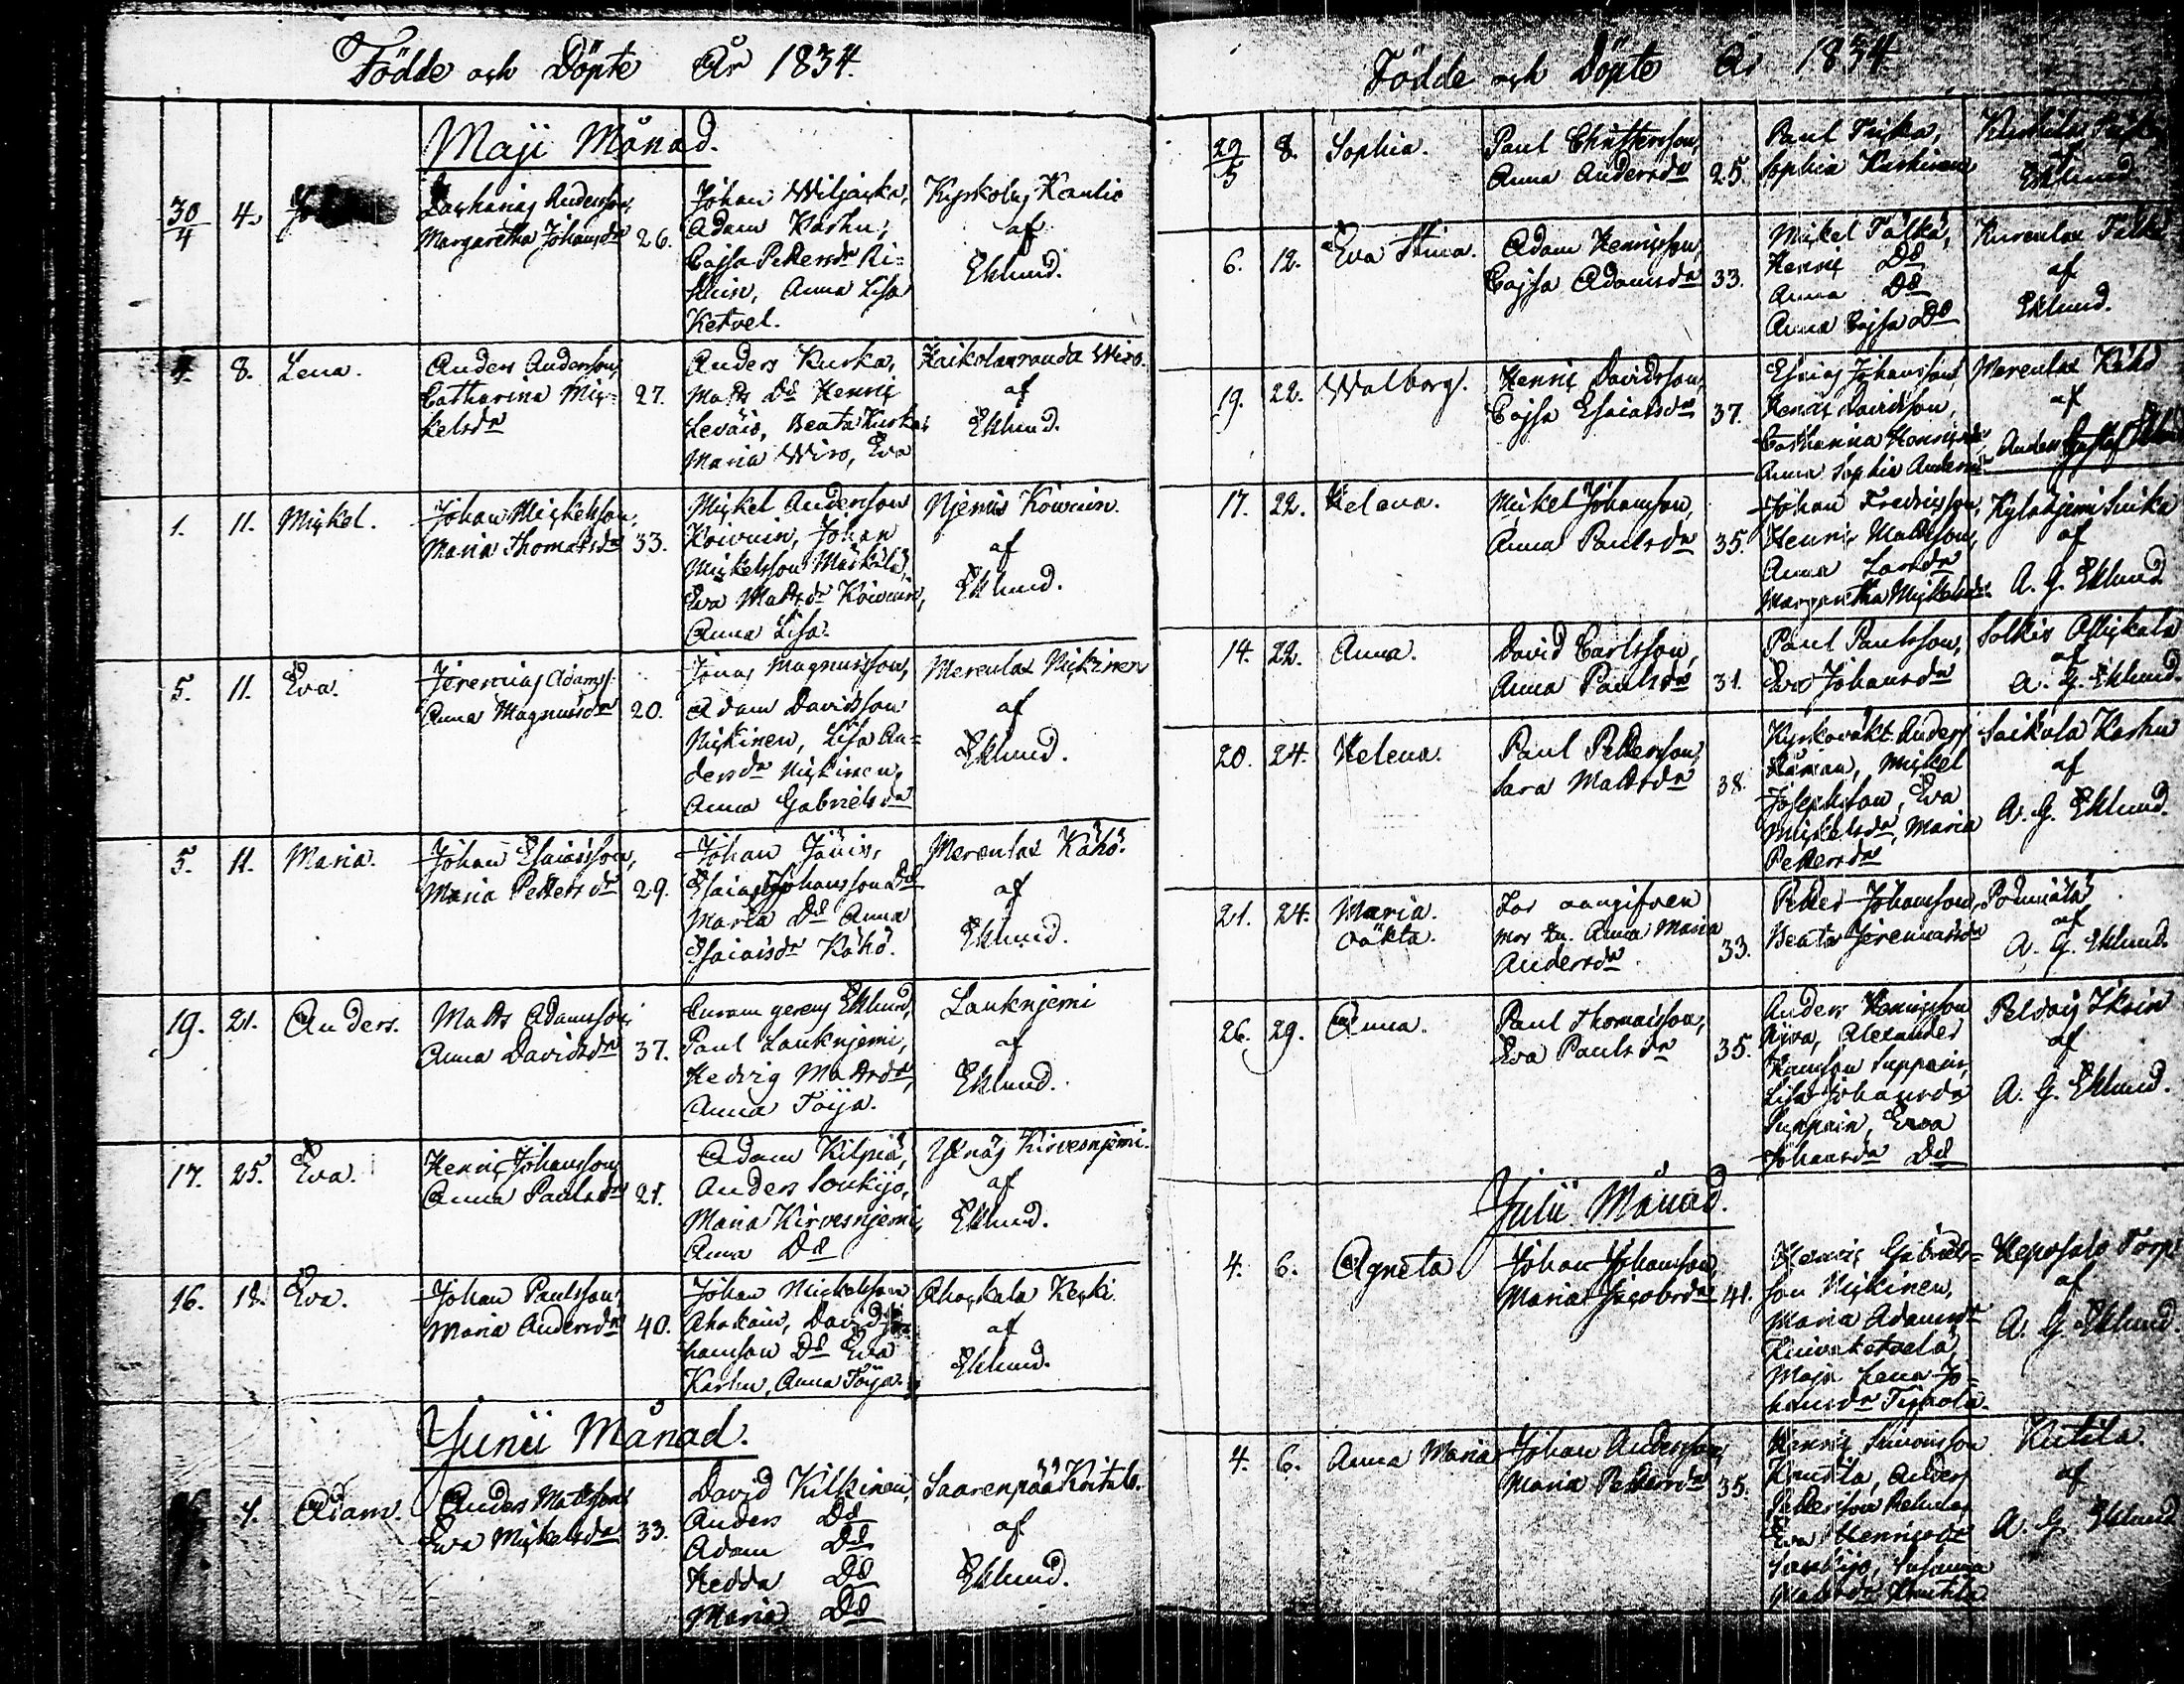 Födde och Döpte År 1834.
Maji Månad.
30/4 4.
Zacharias Andersson,
Margaretha Johansdr 26.
Johan Wiljacka,
Adam Karhu,
Cajsa Pettersdr Ri=
kuin, Anna Lisa
Ketvel.
Kyrkoby Kautio
af
Eklund.
8. Lena.
Anders Andersson,
Catharina Mic= 27.
kelsdr
Anders Kurka,
Matts Do Henric
Leväis, Beata Kurka,
Maria Wiro, Eva
Kaikolanranda Wiro.
af
Eklund.
1. 11. Mickel.
Johan Mickelsson,
Maria Thomasdr 33.
Mickel Andersson
Koivuin, Johan
Mickelsson Mäckelä,
Eva Mattsdr Koivuin,
Anna Lisa.
Njemis Koivuin.
af
Eklund.
5. 11. Eva.
Jeremias Adamss.
Anna Magnusdr 20.
Jonas Magnusson,
Adam Davidsson
Nickinen, Lisa An=
dersdr Nickinen,
Anna Gabrielsdr
Merenlax Nickinen
af
Eklund.
5. 11. Maria.
Johan Esaiasson,
Maria Pettersdr 29.
Johan Jäuis,
Esaias Johansson Do
Maria Do Anna
Esaiaisdr Kähö.
Merenlax Kähö.
af
Eklund.
19. 21. Anders.
Matts Adamsson,
Anna Davidsdr 37.
Curam gerens Eklund,
Paul Lauknjemi,
Hedvig Mattsdr,
Anna Toija.
Lauknjemi
af
Eklund.
17. 25. Eva.
Henric Johansson,
Anna Paulsdr 21.
Adam Kilpiä,
Anders Soukijo,
Maria Kirvesnjemi,
Anna Do
Kirvesnjemi.
af
Eklund.
16. 18. Eva.
Johan Paulsson,
Maria Andersdr 40.
Johan Mickelsson
Ahokain, David Jo=
hansson Do Eva
Karhu, Anna Toija.
Ahockala Kecki.
af
Eklund.
Junii Månad.
4. Adam.
Anders Mattsson,
Eva Mickelsdr 33.
David Kilkinen,
Anders Do
Adam Do
Hedda Do
Maria Do
Saarenpää
af
Eklund.
Födde och Döpte År 1834
29/5 8. Sophia.
Paul Christersson,
Anna Andersdr 25.
Paul
Sophia
Eklund
6. 12. Eva Stina.
Adam Henricsson,
Cajsa Adamsdr 33.
Mickel Tälkä,
Henric Do
Anna Do
Anna Cajsa Do
Kurenlax Tälkä
af
Eklund.
19. 22. Walborg.
Henric Davidsson,
Cajsa Esaiasdr 37.
Esaias Johansson,
Henric Davidsson,
Catharina Henricsdr
Anna Sophia Andersdr
Merenlax Kähö
af
Anders Gustaf Eklund
17. 22. Helena.
Mickel Johansson,
Anna Paulsdr 35.
Johan Fredricsson,
Henric Mattsson,
Anna Larsdr
Margaretha Mickelsdr
Kylänjemi Suika
af
A. G. Eklund
14. 22. Anna.
David Carlsson,
Anna Paulsdr 31.
Paul Paulsson,
Eva Johansdr
Solkis
af
A. G. Eklund.
20. 24. Helena.
Paul Pettersson,
Sara Mattsdr 38.
Kyrkovakt Anders
Häman, Mickel
Josephsson, Eva
Mickelsdr, Maria
Pettersdr
Saikola Karhu
af
A. G. Eklund.
21. 24. Maria.
oäkta.
Far oangifven
mor Anna Maria
Andersdr 33.
Petter Johansson,
Beata Jeremiasdr
af
A. G. Eklund.
26. 29. Anna.
Paul Thomasson,
Eva Paulsdr 35.
Anders Henricsson
Alexander
Suppoin,
Lisa Johansdr
Suppoin, Eva
Johansdr Do
af
A. G. Eklund.
Julii Månad.
4. 6. Agneta.
Johan Johansson,
Maria Jacobsdr 41.
Henric Gabriels=
son Nickinen,
Maria Adamsdr
Maja Lena Jo=
hansdr
Heposalo
af
A. G. Eklund
4. 6. Anna Maria
Johan Andersson,
Maria Pettersdr 35.
Henric Simonsson
Knutila, Anders
Pettersson
Eva Henricsdr
Soukijo, Susanna
af
A. G. Eklund